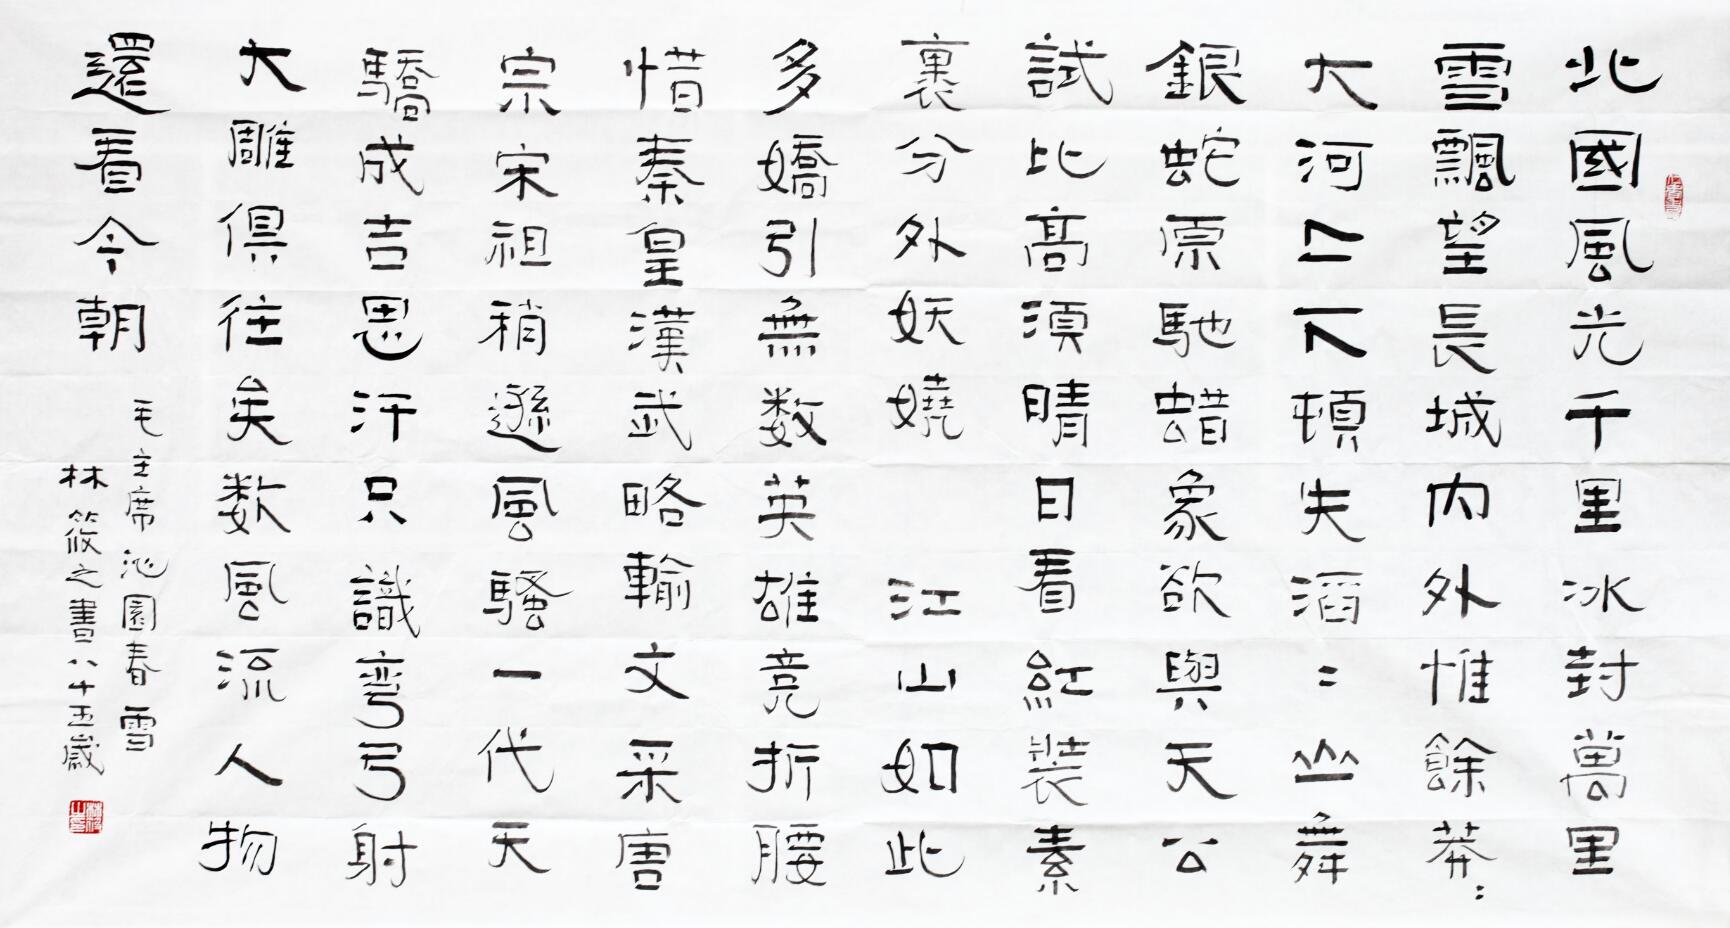 北國風光千里冰封萬里
雪飄望長城内外惟餘莽〻
大河上下頓失滔〻山舞
銀蛇原馳蜡象欲與天公
試比高須晴日看紅裝素
裹分外妖嬈 江山如此
多嬌引無数英雄竞折腰
惜秦皇漢武略輸文采唐
宗宋祖稍遜風騷一代天
驕成吉思汗只識弯弓射
大雕俱往矣数風流人物
還看今朝
毛主席沁園春雪
林筱之書八十五歲